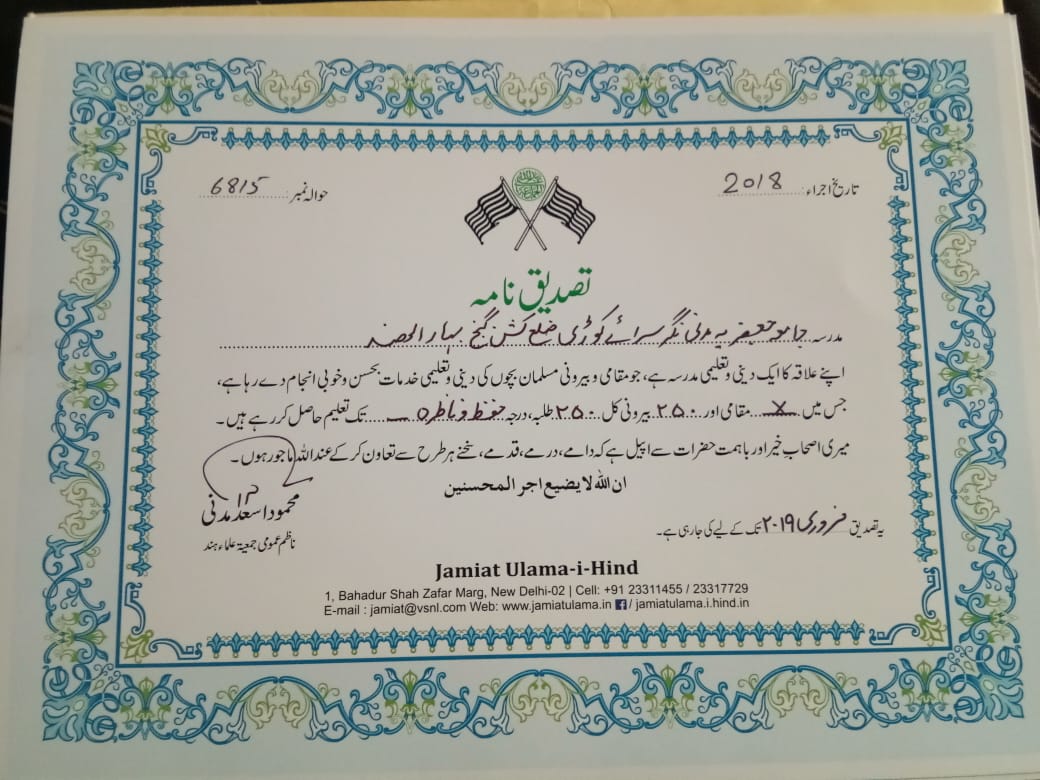 تاریخ اجراء: 2018
حوالہ نمبر: 6815
تصدیق نامہ
مدرسہ جامعہ جعفریہ مدنی نگر سرائے کوڑی ضلع کشن گنج بہار الھند
اپنے علاقہ کا ایک دینی و تعلیمی مدرسہ ہے، جو مقامی و بیرونی مسلمان بچوں کی دینی و تعلیمی خدمات بحسن و خوبی انجام دے رہا ہے،
جس میں X مقامی اور ۲۵۰ بیرونی کل ۲۵۰ طلبہ، درجہ حفظ و ناظرہ تک تعلیم حاصل کر رہے ہیں۔
میری اصحاب خیر اور باہمت حضرات سے اپیل ہے کہ دامے، درمے، قدمے، سخنے ہر طرح سے تعاون کر کے عنداللہ ماجور ہوں۔
ان اللہ لا یضیع اجر المحسنین
محمود اسعد مدنی
ناظم عمومی جمعیۃ علماء ہند
یہ تصدیق فروری ۲۰۱۹ تک کے لیے کی جا رہی ہے۔
Jamiat Ulama-i-Hind
1, Bahadur Shah Zafar Marg, New Delhi-02 | Cell: +91 23311455 / 23317729
E-mail : jamiat@vsnl.com Web: www.jamiatulama.in f / jamiatulama.i.hind.in